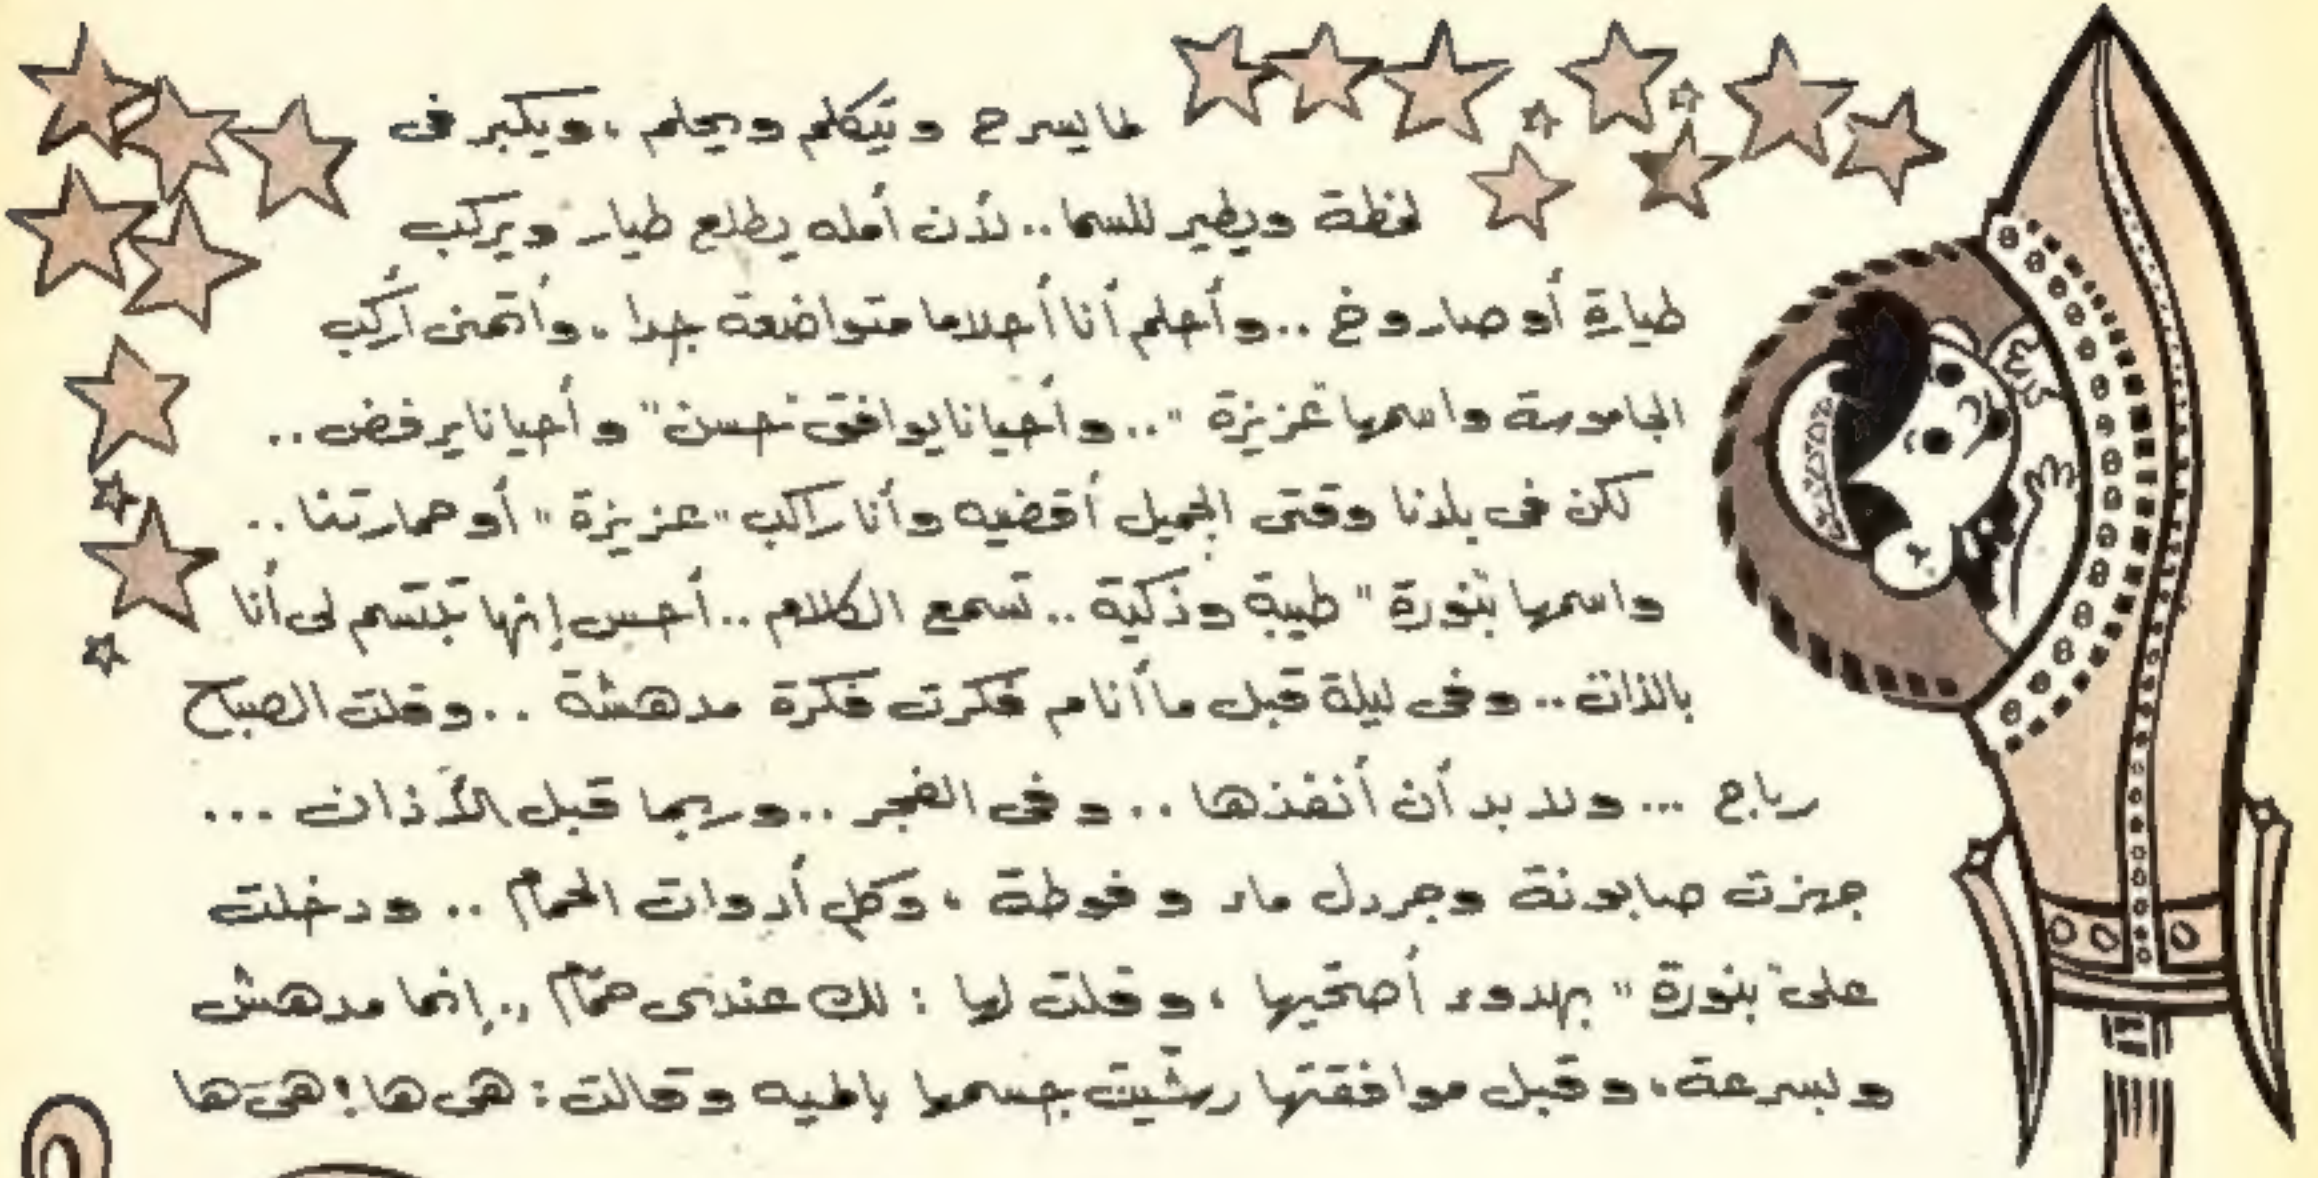 لما يسرح ويتكلم ويحلم ، ويكبر فى
لحظة ويطير للسما .. لأن أمله يطلع طيار ويركب
طيارة أو صاروخ .. وأحلم أنا أحلاما متواضعة جدا ، وأتمنى أركب
الجاموسة واسمها "عزيزة" .. وأحيانا يوافق "حسن" وأحيانا يرفض ..
لكن فى بلدنا وقتى الجميل أقضيه وأنا راكب "عزيزة" أو حمارتنا ..
واسمها "بنورة" طيبة وذكية .. تسمع الكلام .. أحس إنها تبتسم لى أنا
بالذات .. وفى ليلة قبل ما أنام فكرت فكرة مدهشة .. وقلت الصباح
رباح ... ولابد أن أنفذها .. وفى الفجر .. وربما قبل الأذان ...
جهزت صابونة وجردل ماء وفوطة ، وكل أدوات الحمام .. ودخلت
على "بنورة" بهدوء أصحيها ، وقلت لها : لك عندى حمام .. إنما مدهش
وبسرعة ، وقبل موافقتها رشيت جسمها بالميه وقالت : هى ها ! هى ها